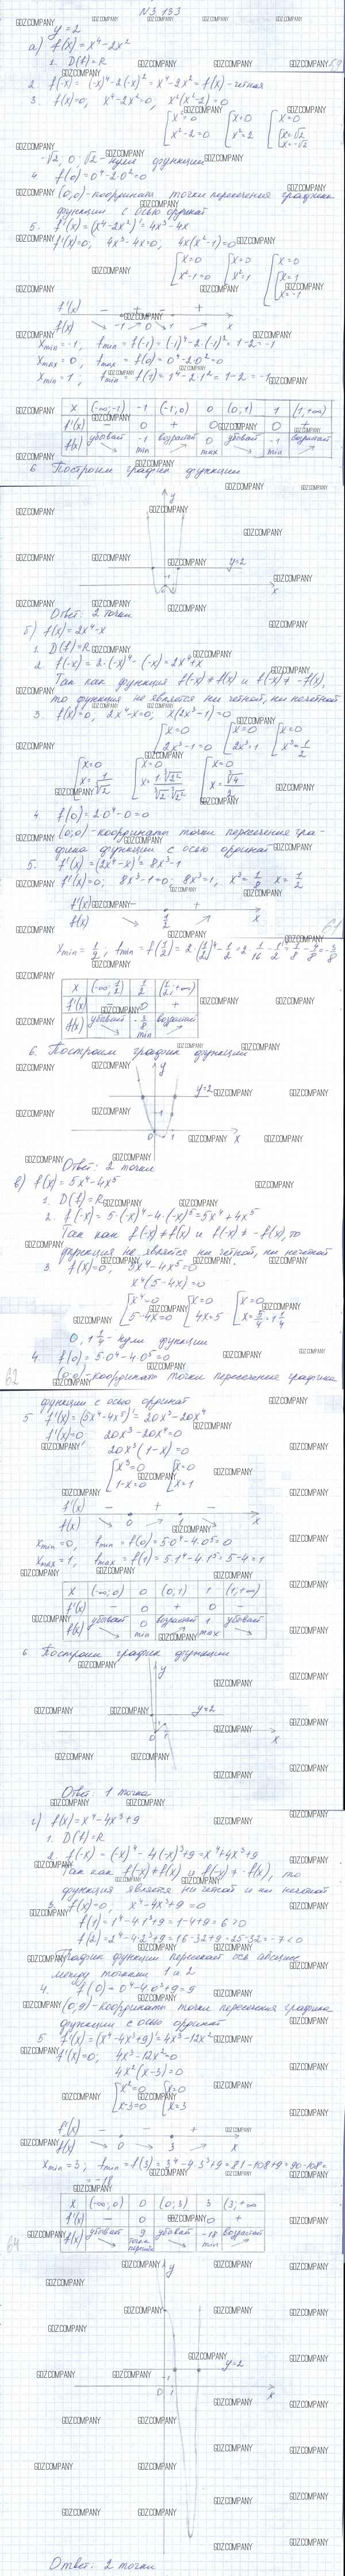 N3 133
y=2
а) f(x)=x⁴-2x²
1. D(f)=R
2. f(-x)=(-x)⁴-2·(-x)²=x⁴-2x²=f(x)-четная
3. f(x)=0, x⁴-2x²=0, x²(x²-2)=0
[x²=0 [x=0 [x=0
x²-2=0 x²=2 [x=√2
x=-√2
-√2, 0, √2-нули функции
4. f(0)=0⁴-2·0²=0
(0;0)-координаты точки пересечения графика
функции с осью ординат
5. f'(x)=(x⁴-2x²)'=4x³-4x
f'(x)=0, 4x³-4x=0, 4x(x²-1)=0
[x=0 [x=0 [x=0
x²-1=0 x²=1 [x=1
x=-1
f'(x) - + - +
f(x) -1 0 1 x
xmin=-1, fmin=f(-1)=(-1)⁴-2·(-1)²=1-2=-1
xmax=0, fmax=f(0)=0⁴-2·0²=0
xmin=1, fmin=f(1)=1⁴-2·1²=1-2=-1
x (-∞;-1) -1 (-1;0) 0 (0;1) 1 (1;+∞)
f'(x) - 0 + 0 - 0 +
f(x) убывает -1 возрастает 0 убывает -1 возрастает
min max min
6. Построим график функции
y
y=2
x
Ответ: 2 точки.
б) f(x)=2x⁴-x
1. D(f)=R
2. f(-x)=2·(-x)⁴-(-x)=2x⁴+x
Так как функция f(-x)≠f(x) и f(-x)≠-f(x),
то функция не является ни четной, ни нечетной
3. f(x)=0, 2x⁴-x=0, x(2x³-1)=0
[x=0 [x=0 [x=0
2x³-1=0 2x³=1 x³=1/2
[x=0 [x=0 [x=0
x=1/∛2 x=1·∛2²/∛2·∛2² x=∛4/2
4. f(0)=2·0⁴-0=0
(0;0)-координаты точки пересечения гра-
фика функции с осью ординат
5. f'(x)=(2x⁴-x)'=8x³-1
f'(x)=0; 8x³-1=0; 8x³=1, x³=1/8 x=1/2
f'(x) - +
f(x) 1/2 x
61
xmin=1/2; fmin=f(1/2)=2·(1/2)⁴-1/2=2·1/16-1/2=1/8-4/8=-3/8
x (-∞;1/2) 1/2 (1/2;+∞)
f'(x) - 0 +
f(x) убывает -3/8 возрастает
min
6. Построим график функции
y
y=2
1
0 1 x
Ответ: 2 точки
в) f(x)=5x⁴-4x⁵
1. D(f)=R
2. f(-x)=5·(-x)⁴-4·(-x)⁵=5x⁴+4x⁵
Так как f(-x)≠f(x) и f(-x)≠-f(x), то
функция не является ни четной, ни нечетной
3. f(x)=0, 5x⁴-4x⁵=0
x⁴(5-4x)=0
[x⁴=0 [x=0 [x=0
5-4x=0 4x=5 x=5/4=1 1/4
0, 1 1/4-нули функции
4. f(0)=5·0⁴-4·0⁵=0
62
(0;0)-координаты точки пересечения графика
функции с осью ординат
5. f'(x)=(5x⁴-4x⁵)'=20x³-20x⁴
f'(x)=0; 20x³-20x⁴=0
20x³(1-x)=0
[x³=0 [x=0
1-x=0 x=1
f'(x) - + -
f(x) 0 1 x
xmin=0, fmin=f(0)=5·0⁴-4·0⁵=0
xmax=1, fmax=f(1)=5·1⁴-4·1⁵=5-4=1
x (-∞;0) 0 (0;1) 1 (1;+∞)
f'(x) - 0 + 0 -
f(x) убывает 0 возрастает 1 убывает
min max
6. Построим график функции
y
y=2
0 1 x
Ответ: 1 точка
г) f(x)=x⁴-4x³+9
1. D(f)=R
2. f(-x)=(-x)⁴-4(-x)³+9=x⁴+4x³+9
Так как f(-x)≠f(x) и f(-x)≠-f(x), то
функция является ни четной и ни нечетной
3. f(x)=0, x⁴-4x³+9=0
f(1)=1⁴-4·1³+9=1-4+9=6>0
f(2)=2⁴-4·2³+9=16-32+9=25-32=-7<0
График функции пересекает ось абсцисс
между точками 1 и 2
4. f(0)=0⁴-4·0³+9=9
(0;9)-координаты точки пересечения графика
функции с осью ординат
5. f'(x)=(x⁴-4x³+9)'=4x³-12x²
f'(x)=0; 4x³-12x²=0
4x²(x-3)=0
[x²=0 [x=0
x-3=0 x=3
f'(x) - - +
f(x) 0 3 x
xmin=3; fmin=f(3)=3⁴-4·3³+9=81-108+9=90-108=
=-18
x (-∞;0) 0 (0;3) 3 (3;+∞
f'(x) - 0 - 0 +
f(x) убывает 9 убывает -18 возрастает
точка перегиба min
64
y
y=2
1
0 1 x
Ответ: 2 точки